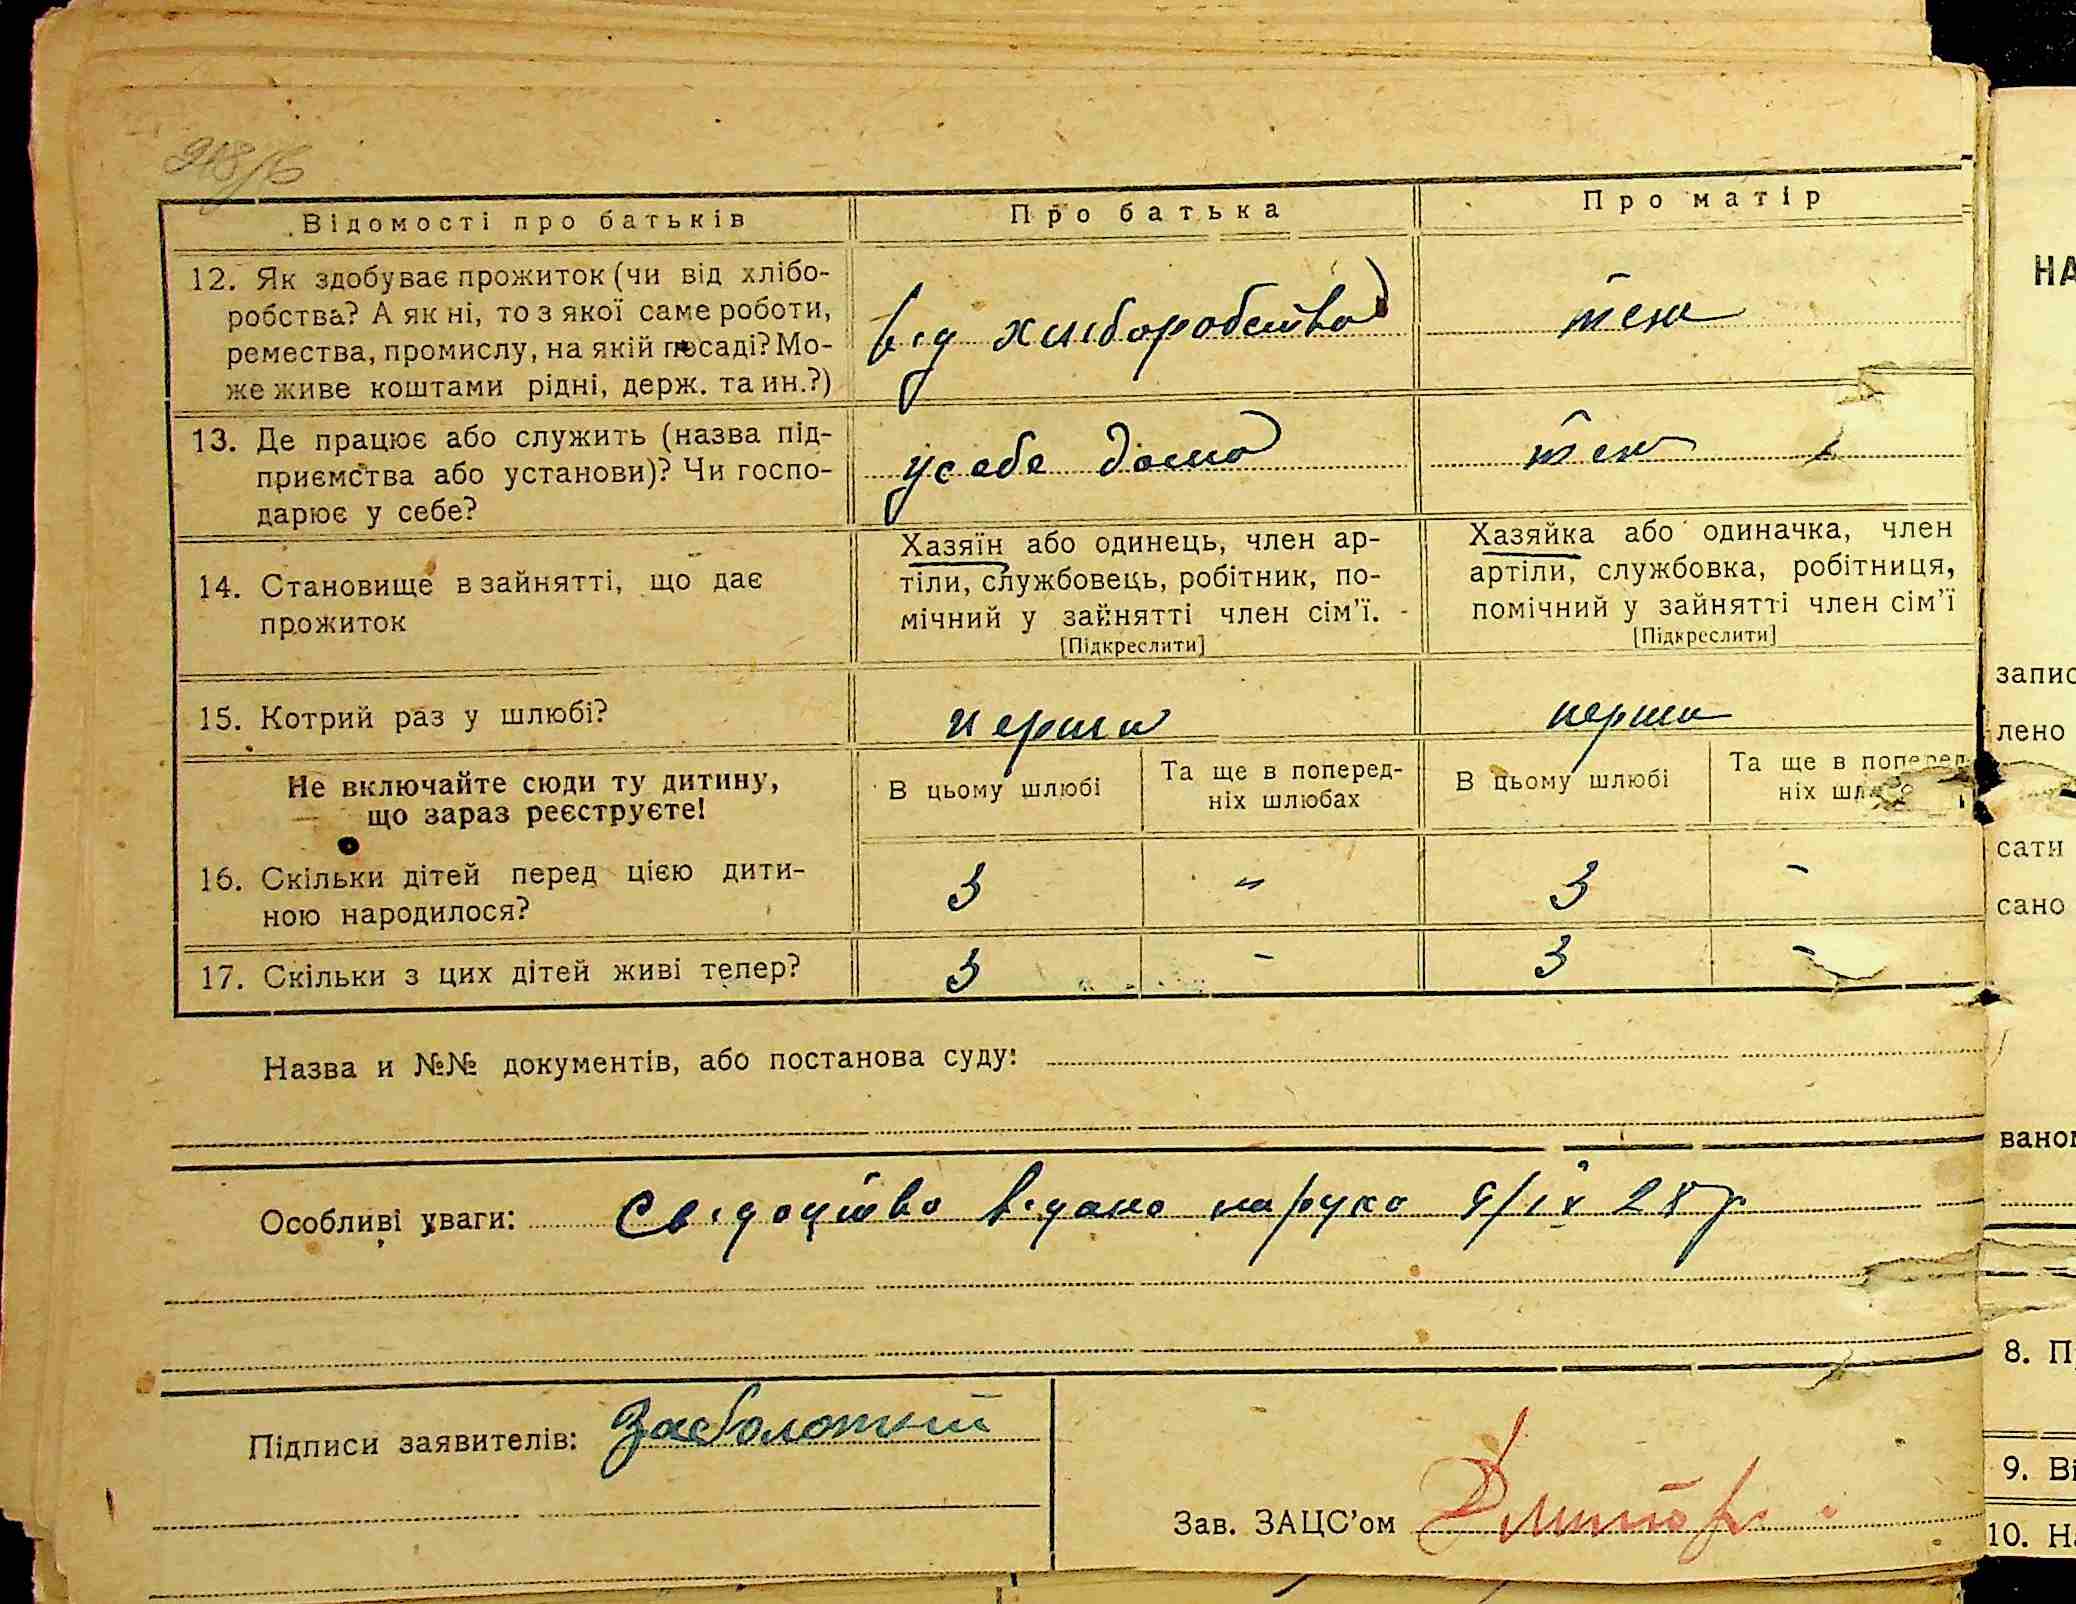 Відомості про батьків
Про батька
Про матір
12. Як здобуває прожиток (чи від хлібо-
робства? А як ні, то з якої саме роботи,
ремества, промислу, на якій посаді? Мо-
же живе коштами рідні, держ. та ин.?)
від хліборобства
теж
13. Де працює або служить (назва під-
приємства або установи)? Чи госпо-
дарює у себе?
у себе дома
теж
14. Становище в зайнятті, що дає
прожиток
Хазяїн або одинець, член ар-
тіли, службовець, робітник, по-
мічний у зайнятті член сім’ї.
[Підкреслити]
Хазяйка або одиначка, член
артіли, службовка, робітниця,
помічний у зайнятті член сім’ї
[Підкреслити]
15. Котрий раз у шлюбі?
перши
перши
Не включайте сюди ту дитину,
що зараз реєструєте!
В цьому шлюбі
Та ще в поперед-
ніх шлюбах
В цьому шлюбі
Та ще в поперед-
ніх
16. Скільки дітей перед цією дити-
ною народилося?
3
"
3
-
17. Скільки з цих дітей живі тепер?
3
-
3
-
Назва и №№ документів, або постанова суду:
Особливі уваги: Свідоцтво видано на руко /IX 28 р
Підписи заявителів: Заболотній
Зав. ЗАЦС’ом
НА
запис
лено
сати
сано
ваном
8. П
9. Ві
10. На